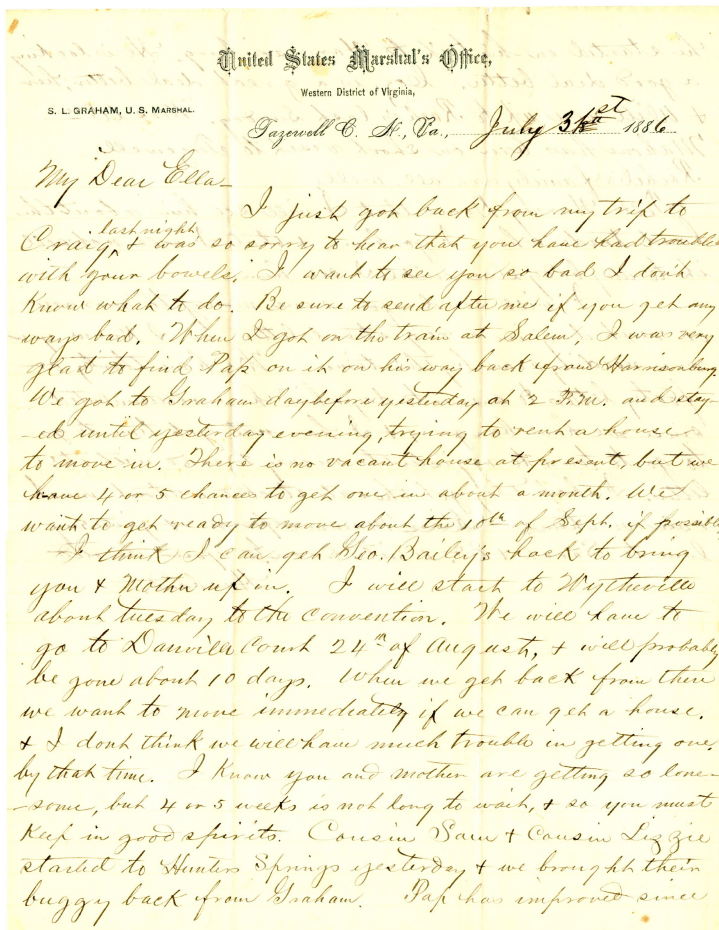 United States Marshal's Office,
Western District of Virginia,
S. L. GRAHAM, U. S. MARSHAL.
Tazewell C. H., Va., July 31st 1886
My Dear Ella—
I just got back from my trip to
Craig, last night & was so sorry to hear that you have had trouble
with your bowels. I want to see you so bad I don't
know what to do. Be sure to send after me if you get any
ways bad. When I got on the train at Salem, I was very
glad to find Pap on it on his way back from Harrisonburg
We got to Graham day before yesterday at 2 P.M. and stay-
-ed until yesterday evening, trying to rent a house
to move in. There is no vacant house at present, but we
have 4 or 5 chances to get one in about a month. We
want to get ready to move about the 10th of Sept. if possible
—I think I can get Geo. Bailey's hack to bring
you & Mother up in. I will start to Wytheville
about tuesday to the convention. We will have to
go to Danville Court 24th of August, & will probably
be gone about 10 days. When we get back from there
we want to move immediately if we can get a house.
& I dont think we will have much trouble in getting one,
by that time. I know you and mother are getting so lone-
-some, but 4 or 5 weeks is not long to wait, & so you must
keep in good spirits. Cousin Sam & Cousin Lizzie
started to Hunters Springs yesterday & we brought their
buggy back from Graham. Pap has improved since